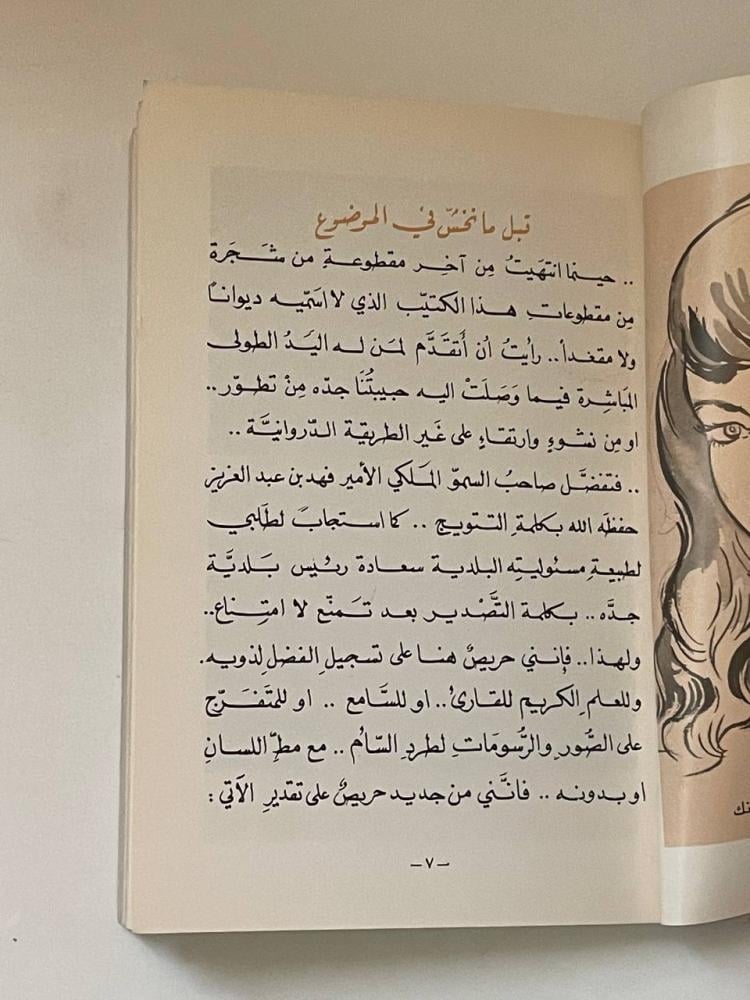 قبل ما نخشّ في الموضوع
.. حينما انتهَيتُ مِن آخِر مقطوعةٍ من شَجَرة
مِن مقطوعاتِ هذا الكتيّب الذي لا اسَمّيه ديواناً
ولا مقغداً .. رأيتُ أنْ أتقَدَّم لمَن له اليَدُ الطولى
المبَاشِرة فيما وَصَلَتْ اليه حبيبتُنَا جدّه مِنْ تطوّر ..
او مِن نشوءٍ وارتقاءٍ على غَير الطريقة الدّروانيَّة ..
.. فتفضَّل صاحبُ السموّ المَلكي الأمير فهد بن عبد العزيز
حفظَه الله بكلمةِ التتويج .. كما استجابَ لطَلَبي
لطبيعةِ مسئوليتِه البلدية سعادة رئيس بَلديَّة
جدَّه .. بكلمة التَّصْدير بعد تَمنّع لا امتِناع ..
ولهذا .. فإنني حريصٌ هنا على تسجيل الفضل لذويه .
وللعلم الكريم للقارئ .. او للسَّامع .. او للمتَفَرّج
على الصُّورِ والرُّسومَاتِ لطردِ السَّأم .. مع مطِّ اللسانِ
او بدونه .. فانَّني من جديد حريصٌ على تقديرِ الآتي :
-٧-
تك